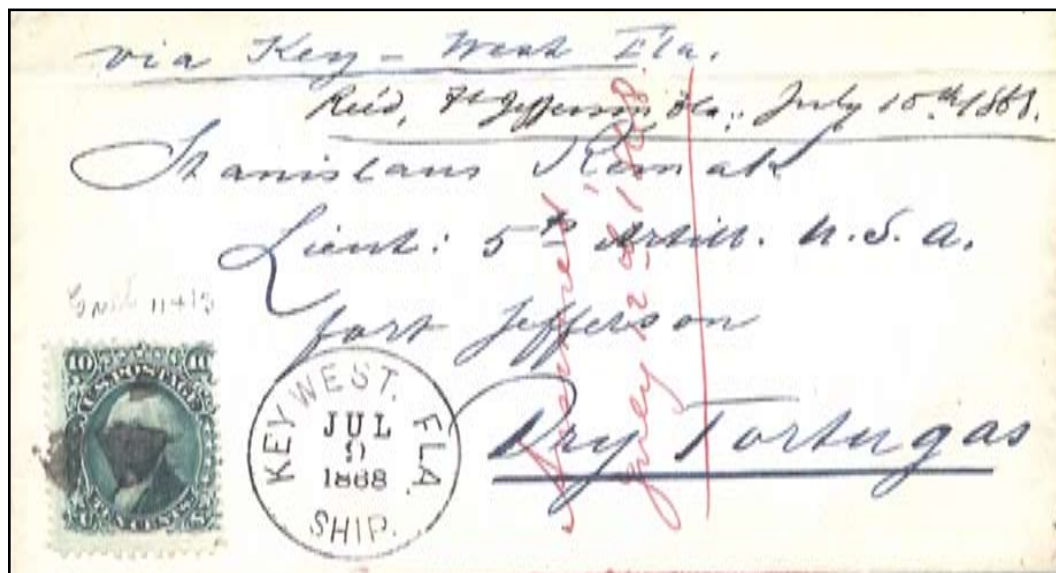 via Key - West Fla.
Rec'd, Ft Jefferson Fla., July 10th 1868.
Stanislaus Remak
Lieut: 5th Artill. U.S.A.
Fort Jefferson
Dry Tortugas
Answered
July 12th 1868.
10 10
U.S. POSTAGE
TEN CENTS
KEY WEST. FLA.
JUL
9
1868
SHIP.